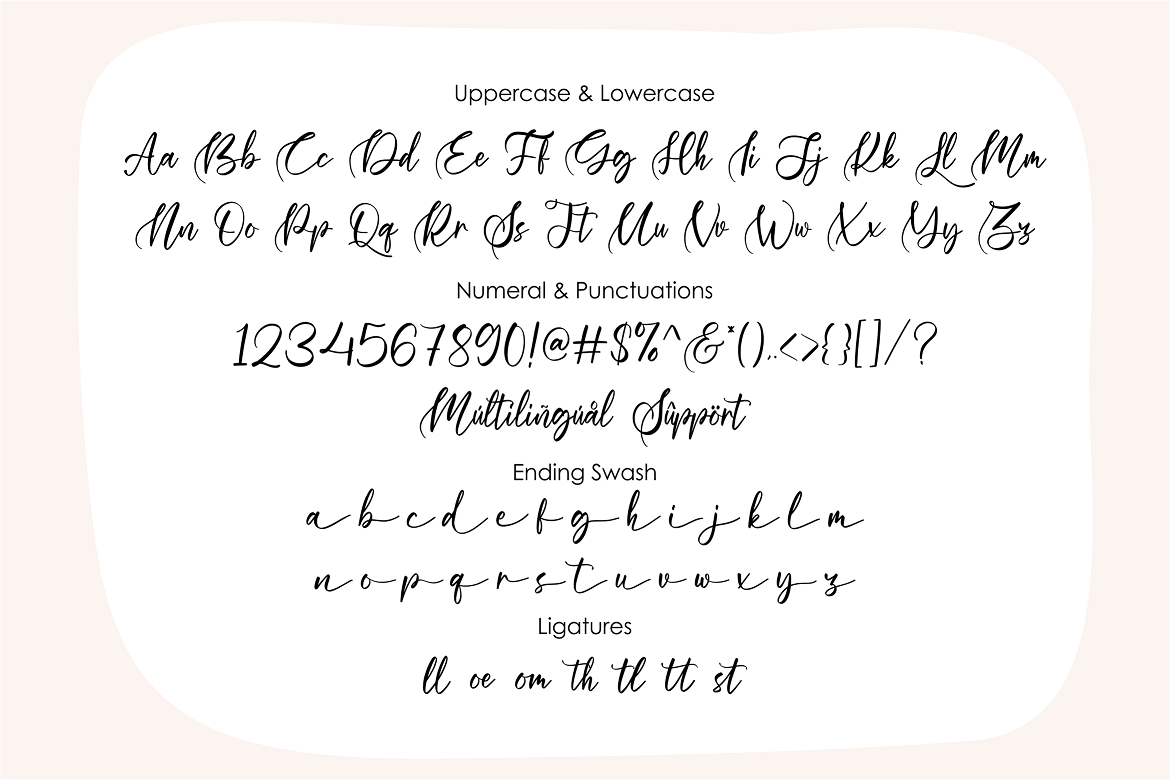 Uppercase & Lowercase
Aa Bb Cc Dd Ee Ff Gg Hh Ii Jj Kk Ll Mm
Nn Oo Pp Qq Rr Ss Tt Uu Vv Ww Xx Yy Zz
Numeral & Punctuations
1234567890!@#$%^&*().,<>{}[]/?
Múltiliñguål Sûppört
Ending Swash
a b c d e f g h i j k l m
n o p q r s t u v w x y z
Ligatures
ll oe om th tl tt st